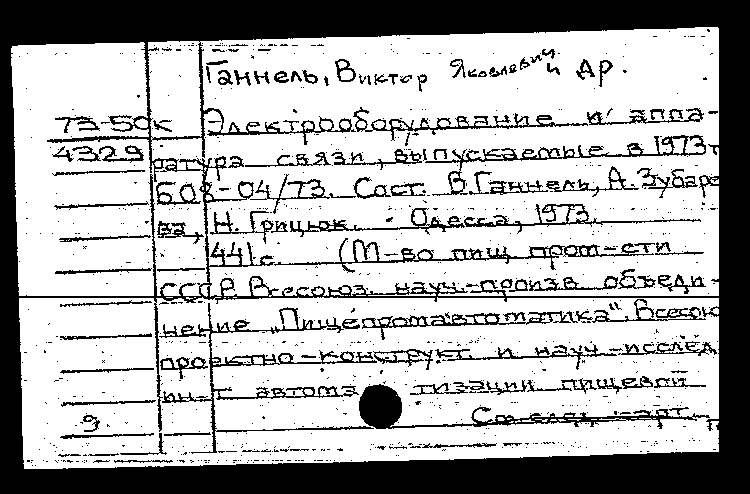 Ганнель, Виктор Яковлевич и др.
73-50к Электрооборудование и аппа-
4329 ратура связи, выпускаемые в 1973 г
608-04/73. Сост. В. Ганнель, А. Зубаре
ва, Н. Грицюк. Одесса, 1973.
441 с. (М-во пищ пром-сти
СССР. Всесоюз. науч.-произв объеди-
нение „Пищепромавтоматика". Всесою
проектно-конструкт. и науч.-исслед
ин-т автоматизации пищевой
9 См. след. карт.